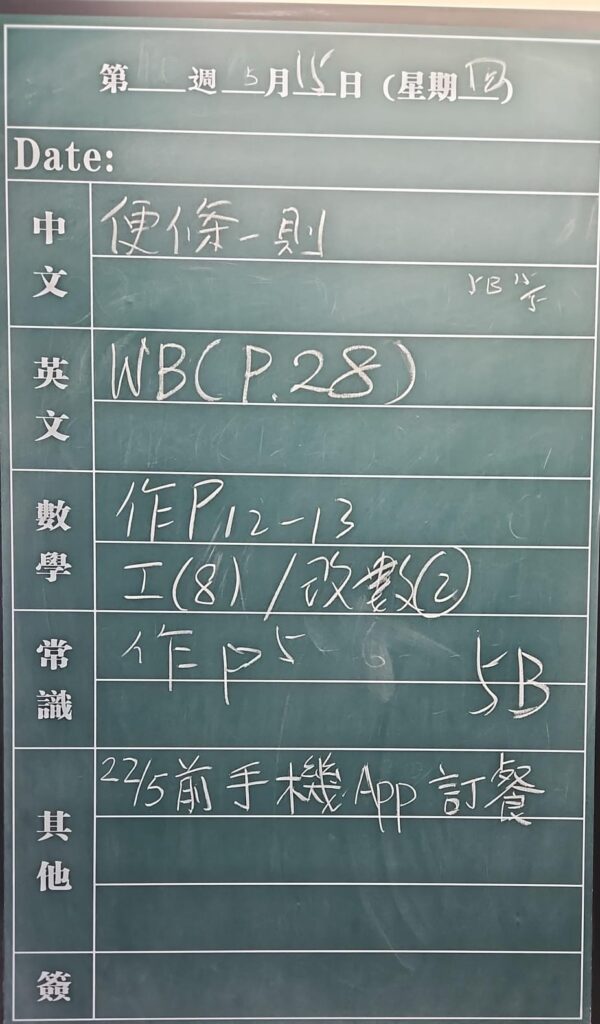 第 週 5月15日 (星期四)
Date:
中文
便條一則
5B 15/5
英文
WB(P.28)
數學
作P12-13
工(8) /改數②
常識
作p5
5B
其他
22/5前手機App訂餐
簽